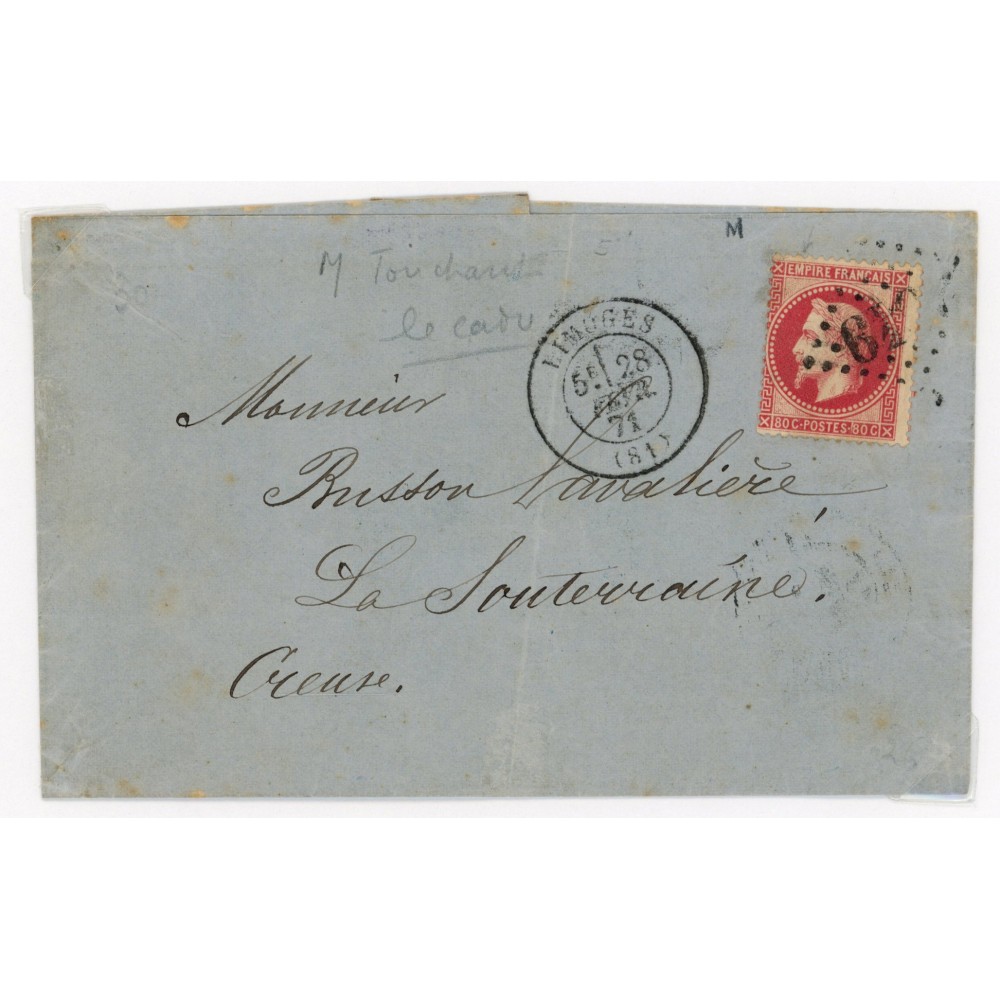 M
M Touchard
le cadu
LIMOGES
5E 28
FEVR.
71
(81)
EMPIRE FRANÇAIS
80C·POSTES·80C
Monsieur
Busson Lavalière
La Souterraine.
Creuse.